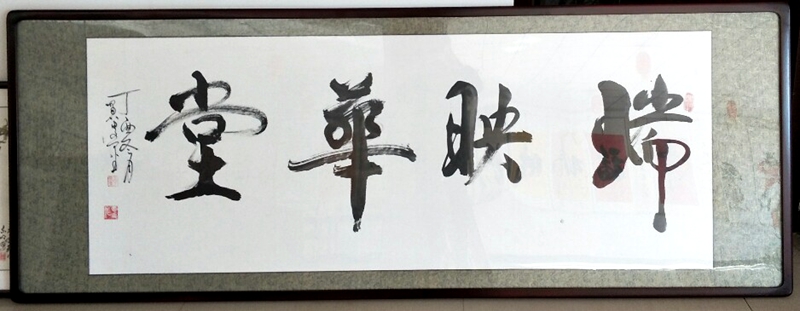 瑞映華堂
丁酉冬月